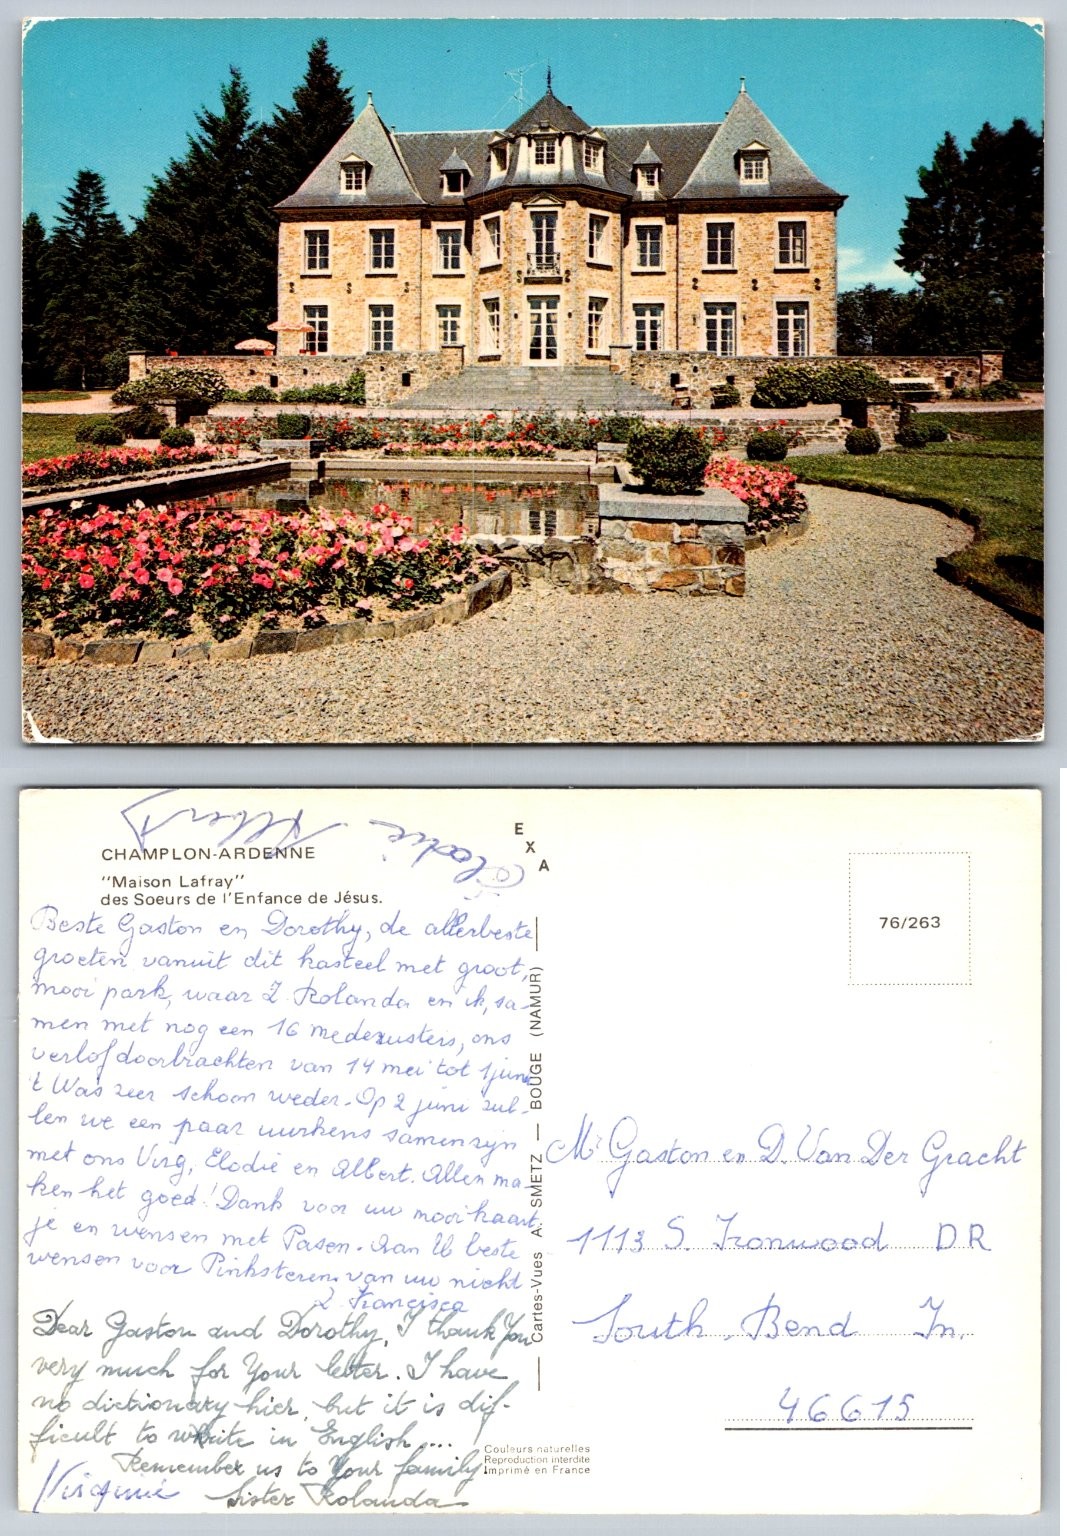 Elodie. Albert
CHAMPLON-ARDENNE
"Maison Lafray"
des Soeurs de l'Enfance de Jésus.
Beste Gaston en Dorothy, de allerbeste
groeten vanuit dit kasteel met groot,
mooi park, waar Z. Rolanda en ik, sa-
men met nog een 16 medezusters, ons
verlof doorbrachten van 14 mei tot 1 juni
't Was zeer schoon weder. Op 2 juni zul-
len we een paar uurkens samen zijn
met ons Virg, Elodie en Albert. Allen ma-
ken het goed! Dank voor uw mooi kaart
je en wensen met Pasen. Aan U beste
wensen voor Pinksteren van uw nicht
Z. Francisca
Dear Gaston and Dorothy, I thank You
very much for Your letter. I have
no dictionary hier, but it is dif-
ficult to white in English....
Remember us to Your family
Virginie Sister Rolanda
EXA
Cartes-Vues A. SMETZ — BOUGE (NAMUR)
Couleurs naturelles
Reproduction interdite
Imprimé en France
76/263
Mr Gaston en D. Van Der Gracht
1113 S. Ironwood DR
South Bend In.
46615